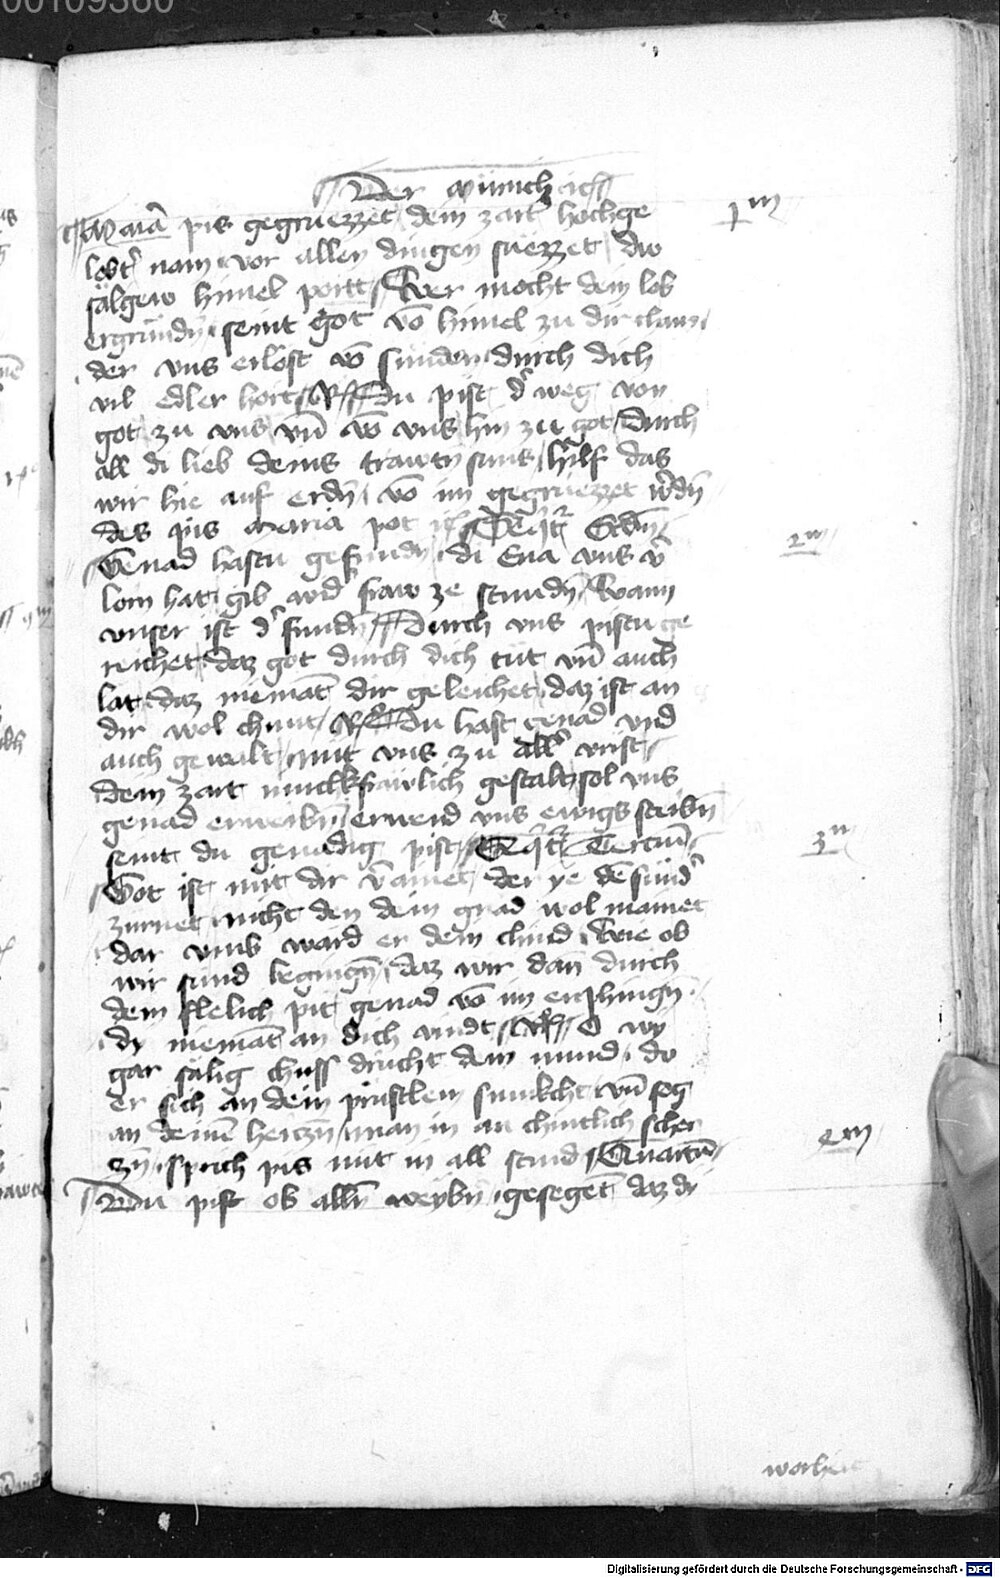 00109360
Der münich etc
Maria pis gegruezzet dein zart hochge
lobter nam vor allen dingen süezzet du
sälgew himel portt Wer mocht dein lob
ergründn seint got vo himel zu dir cham
der vns erlost vo sunden durch dich
vil edler hort R Du pist der weg von
got zu vns vn vo vns hin zu got Durch
all di lieb deins trawtn suns hilf das
wir hie auf erdn vo im gegruezzet werdn
des pis maria pot Sequitur Secundum
Genad hastu gefundn di Eua vns ver
lorn hat gib wider fraw ze stundn Wann
vnser ist der fundn Durch vns pistu ge
reichet daz got durch dich tut vn auch
lat daz niemat dir geleichet daz ist an
dir wol chunt R Du hast genad vnd
auch gewalt mit vns zu aller vrist
dein zart iunckfrawlich gestalt sol vns
genad erwerbn erwend vns ewigs sterbn
seint du genadig pist Sequitur Tercium
Got ist mit dir veraynet der ye den sünder
zurnet nicht den dein gnad wol mainet
dar vmb ward er dein chind Wie ob
wir sund begingn daz wir dan durch
dein flelich pit genad vo im enphingn
dy niemat an dich vindt R O wy
gar sälig chuss drucht dein mund do
er sich an dein prustlein smukcht vn sog
an deinen hertzn man in an chintlich scher
zn sprich pis mit in all stund Quartum
Du pist ob alln weybn gesegent daz dy
1m
2m
3m
4m
Digitalisierung gefördert durch die Deutsche Forschungsgemeinschaft - DFG